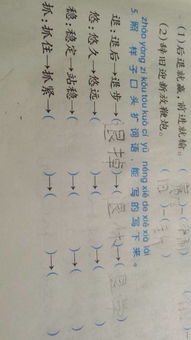 (1)后退就赢,前进就输。
(2)辞旧迎新放鞭炮。
zhào yàng zi kǒu tóu kuò cí yǔ néng xiě de xiě xià lái
5. 照样子口头扩词语,能写的写下来。
退:退后→退步→( )→( )→( )
悠:悠久→悠远→( )→( )→( )
稳:稳定→站稳→( )→( )→( )
抓:抓住→抓紧→( )→( )→( )